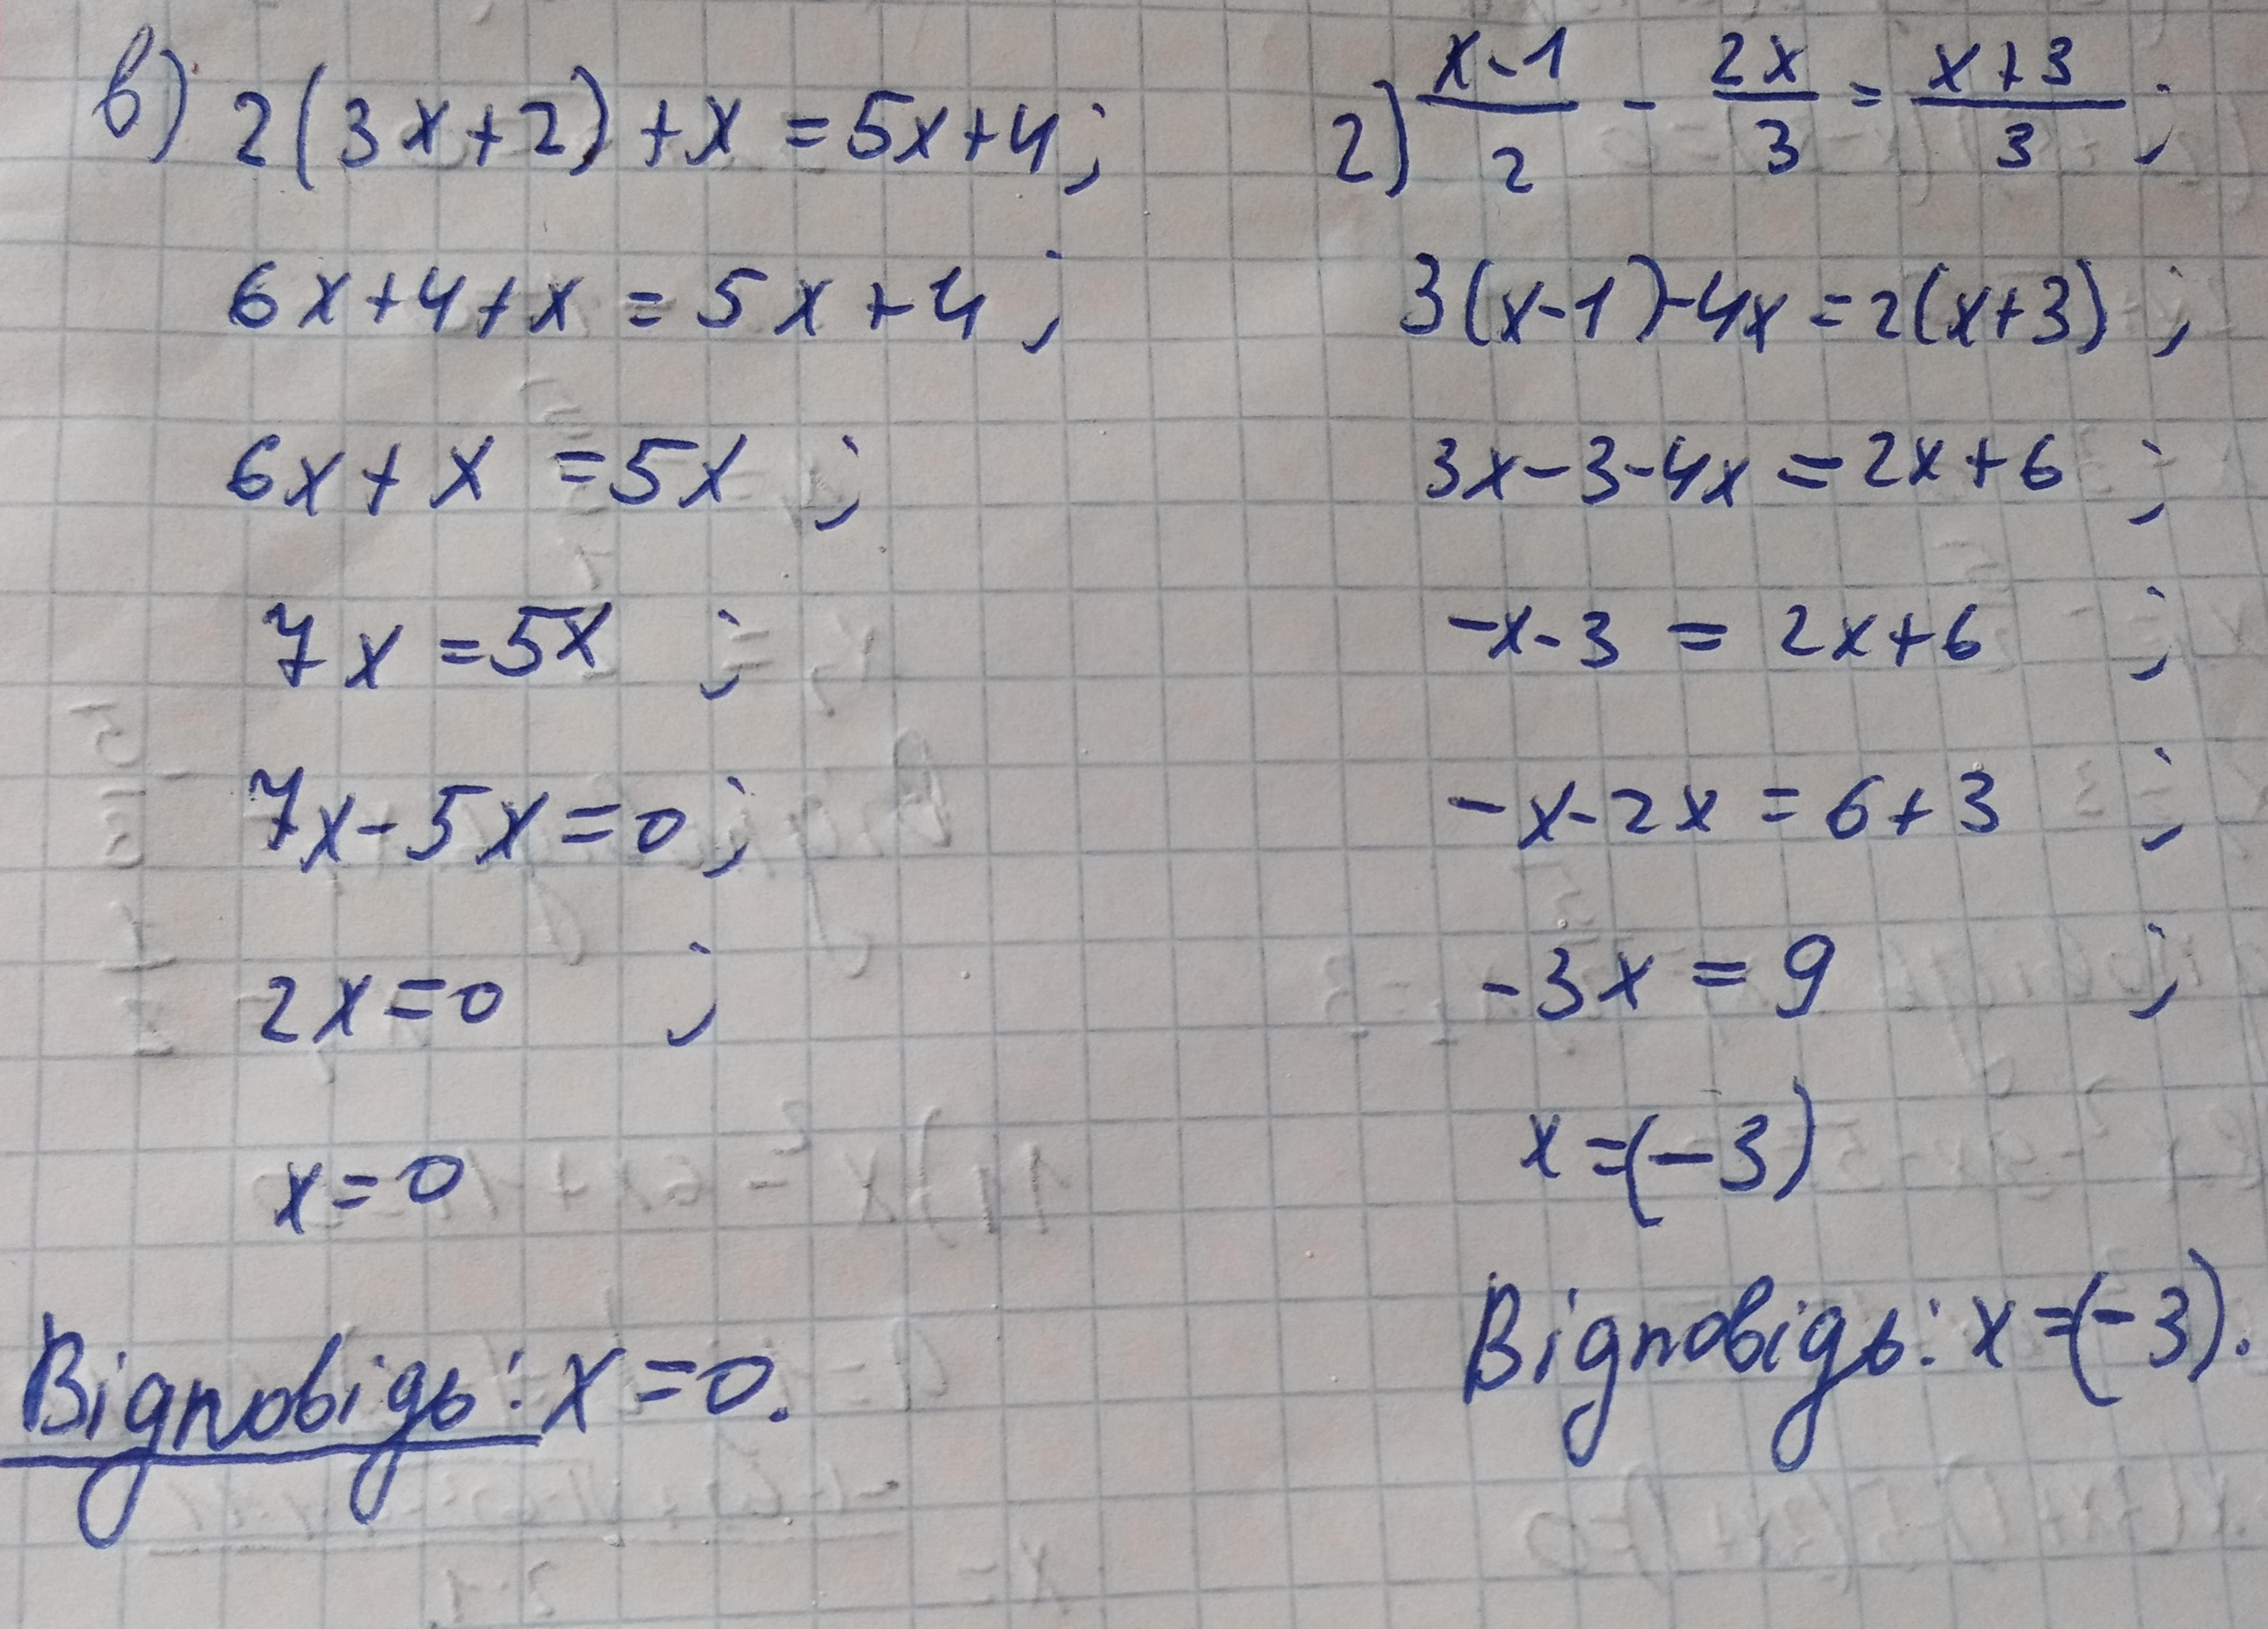 в) 2(3x+2)+x=5x+4;
6x+4+x=5x+4;
6x+x=5x;
7x=5x;
7x-5x=0;
2x=0;
x=0
Відповідь: x=0.
г) \frac{x-1}{2} - \frac{2x}{3} = \frac{x+3}{3};
3(x-1)-4x=2(x+3);
3x-3-4x=2x+6;
-x-3=2x+6;
-x-2x=6+3;
-3x=9;
x=(-3)
Відповідь: x=(-3).